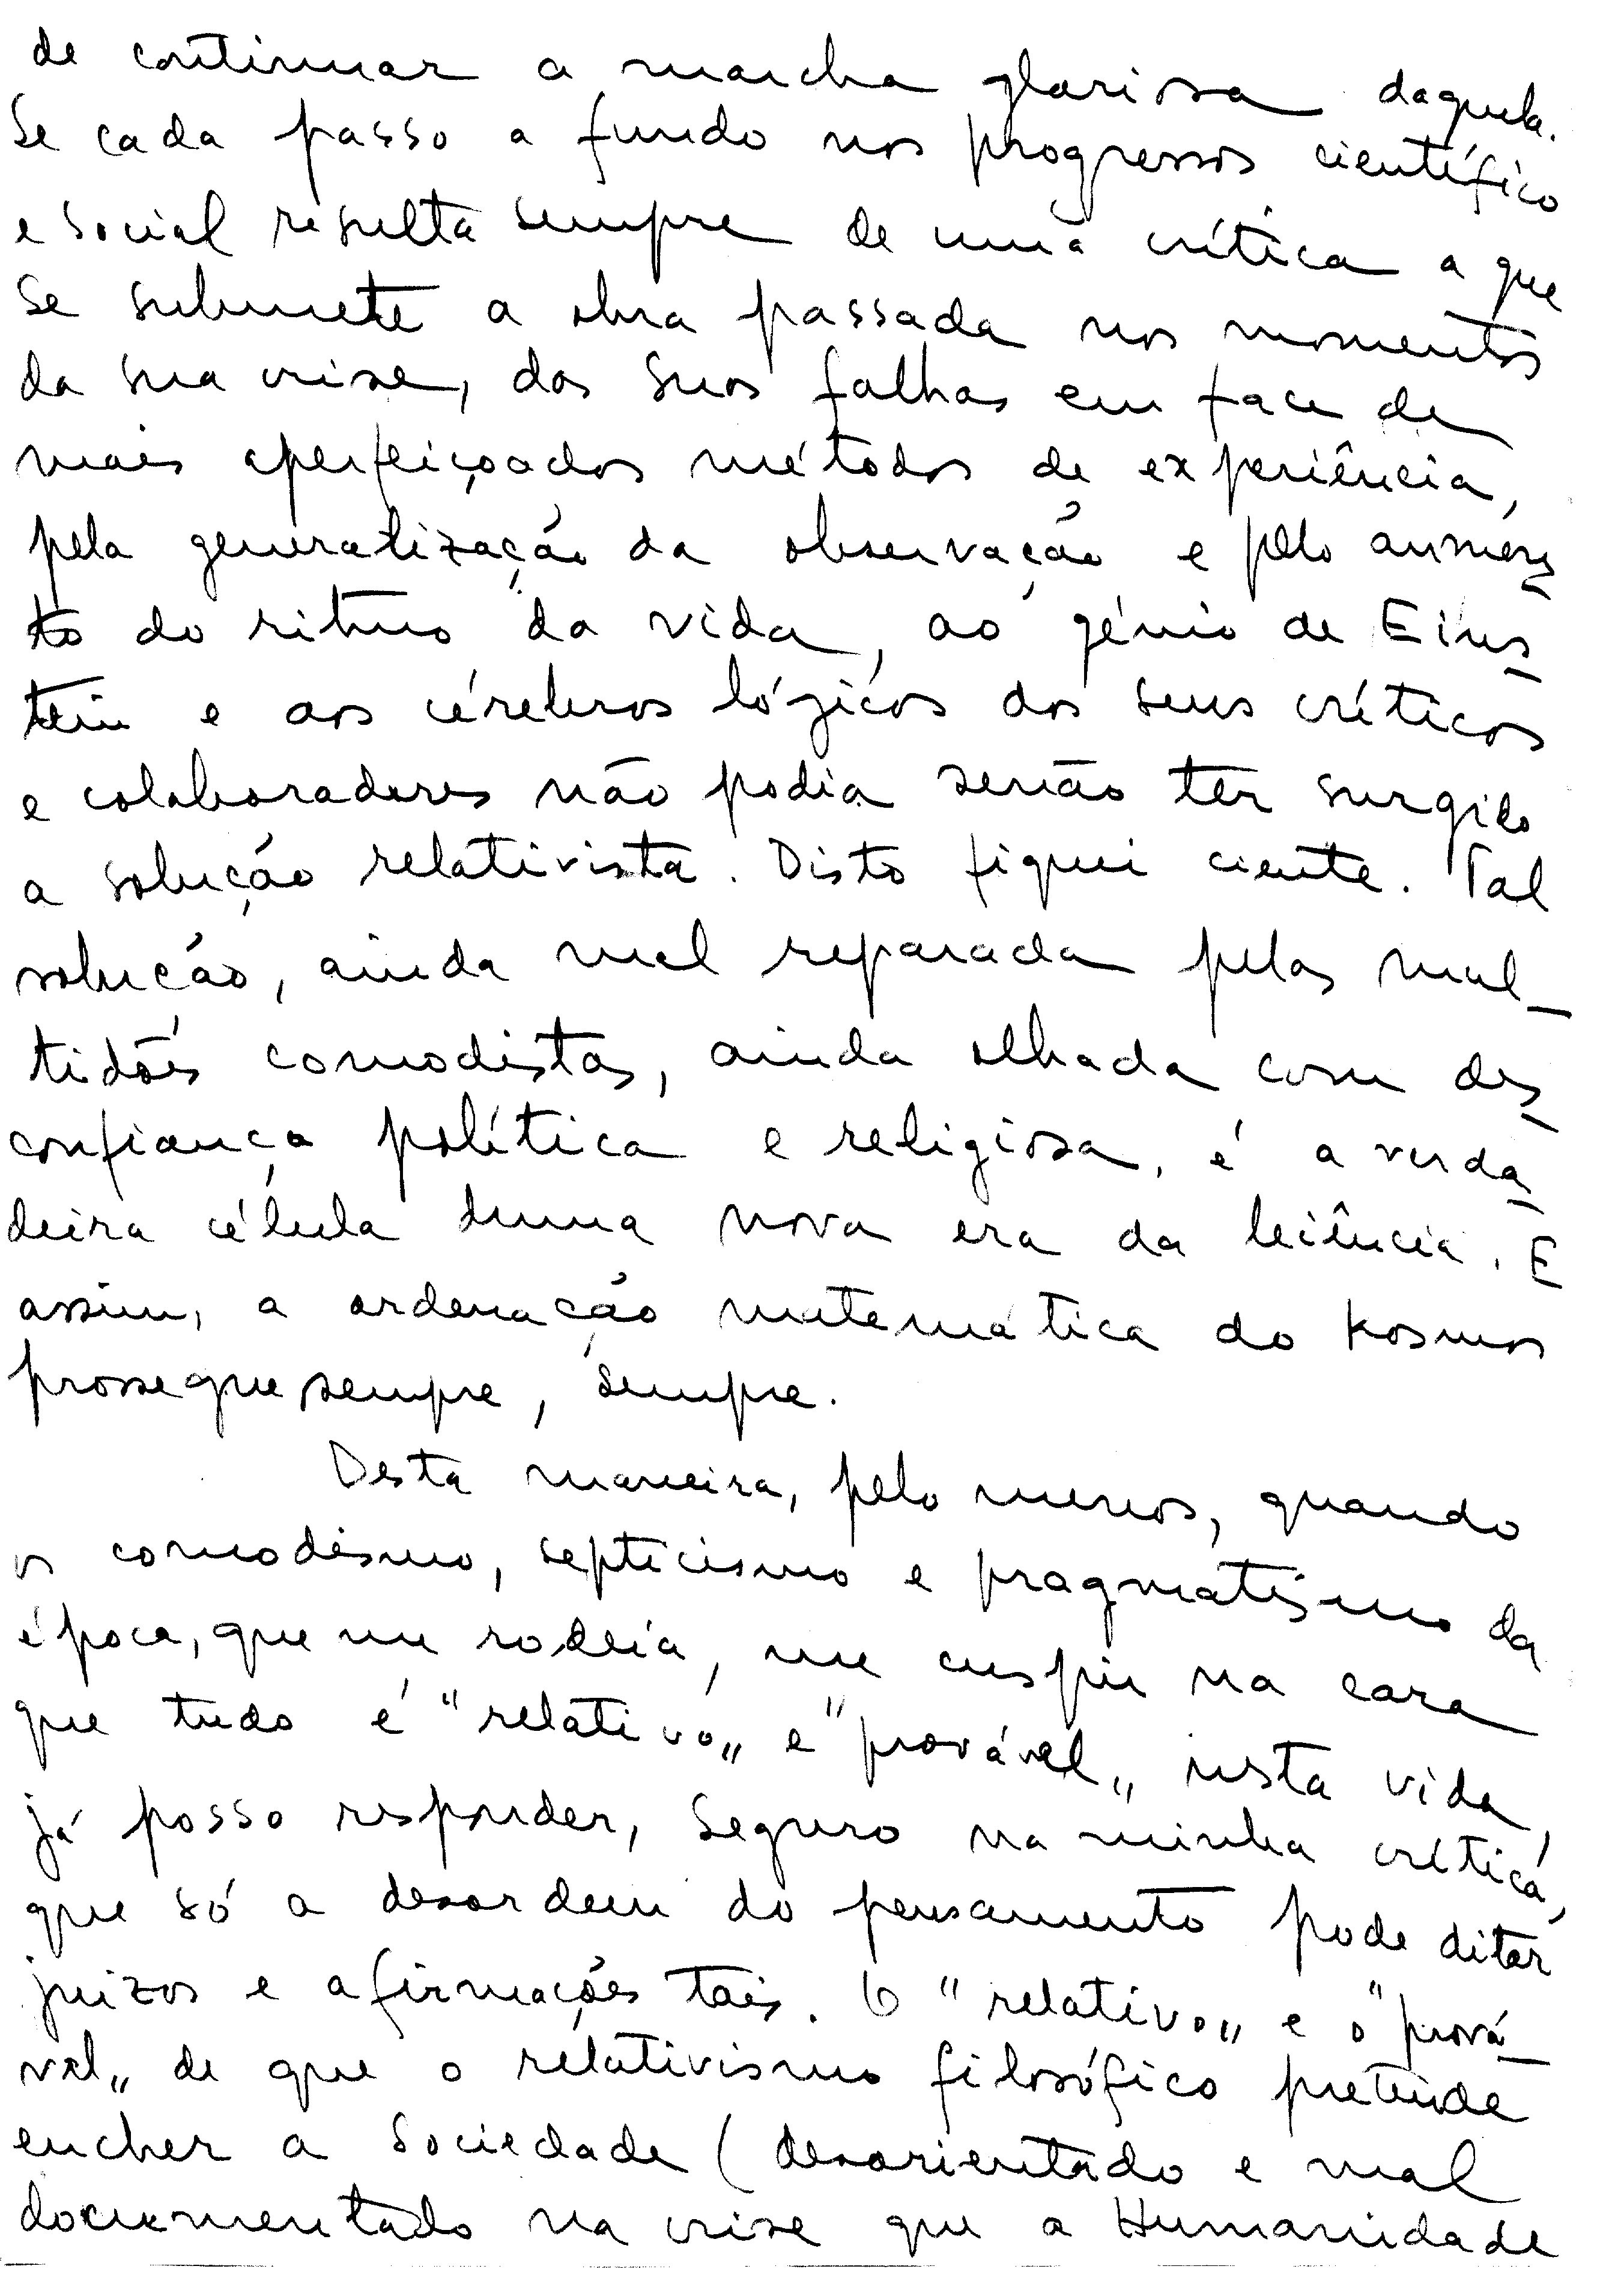 de continuar a marcha gloriosa daquela.
Se cada passo a fundo nos progressos científico
e social resulta sempre de uma crítica a que
se submete a obra passada nos momentos
da sua crise, das suas falhas em face de
mais aperfeiçoados métodos de experiência,
pela generalização da observação e pelo aumen-
to do ritmo da vida, ao génio de Eins-
tein e aos cérebros lógicos dos seus críticos
e colaboradores não podia senão ter surgido
a solução relativista. Disto fiquei ciente. Tal
solução, ainda mal reparada pelas mul-
tidões comodistas, ainda olhada com des-
confiança política e religiosa, é a verda-
deira célula duma nova era da Ciência. E
assim, a ordenação matemática do Kosmos
prossegue sempre, sempre.
Desta maneira, pelo menos, quando
o comodismo, septicismo e pragmatismo da
época, que me rodeia, me cuspir na cara
que tudo é "relativo„ e "provável„ nesta vida,
já posso responder, seguro na minha crítica,
que só a desordem do pensamento pode ditar
juizos e afirmações tais. O "relativo„ e o "prová-
vel„ de que o relativismo filosófico pretende
encher a Sociedade (desorientado e mal
documentado na crise que a Humanidade